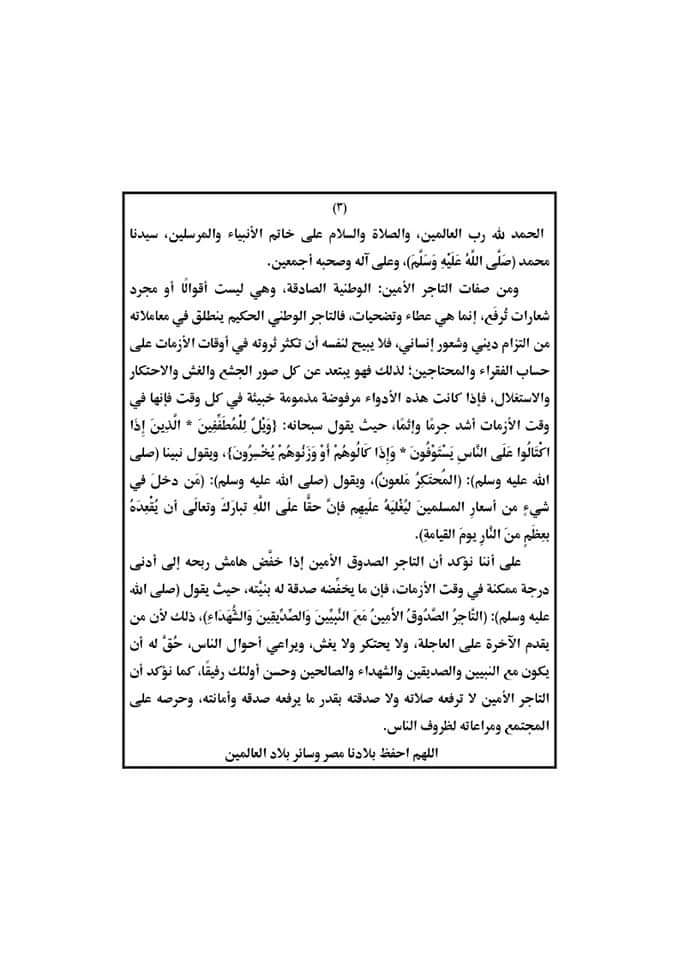 (٣)
الحمد لله رب العالمين، والصلاة والسلام على خاتم الأنبياء والمرسلين، سيدنا
محمد (صَلَّى اللَّهُ عَلَيْهِ وَسَلَّمَ)، وعلى آله وصحبه أجمعين.
ومن صفات التاجر الأمين: الوطنية الصادقة، وهي ليست أقوالًا أو مجرد
شعارات تُرفَع، إنما هي عطاء وتضحيات، فالتاجر الوطني الحكيم ينطلق في معاملاته
من التزام ديني وشعور إنساني، فلا يبيح لنفسه أن تكثر ثروته في أوقات الأزمات على
حساب الفقراء والمحتاجين؛ لذلك فهو يبتعد عن كل صور الجشع والغش والاحتكار
والاستغلال، فإذا كانت هذه الأدواء مرفوضة مذمومة خبيثة في كل وقت فإنها في
وقت الأزمات أشد جرمًا وإثمًا، حيث يقول سبحانه: {وَيْلٌ لِلْمُطَفِّفِينَ * الَّذِينَ إِذَا
اكْتَالُوا عَلَى النَّاسِ يَسْتَوْفُونَ * وَإِذَا كَالُوهُمْ أَوْ وَزَنُوهُمْ يُخْسِرُونَ}، ويقول نبينا (صلى
الله عليه وسلم): (المُحتَكِرُ مَلعونٌ)، ويقول (صلى الله عليه وسلم): (مَن دخلَ في
شيءٍ من أسعارِ المسلمينَ ليُغْليَهُ علَيهِم فإنَّ حقًّا علَى اللَّهِ تبارَكَ وتعالَى أن يُقْعِدَهُ
بعِظَمٍ منَ النَّارِ يومَ القيامةِ).
على أننا نؤكد أن التاجر الصدوق الأمين إذا خفَّض هامش ربحه إلى أدنى
درجة ممكنة في وقت الأزمات، فإن ما يخفِّضه صدقة له بنيَّته، حيث يقول (صلى الله
عليه وسلم): (التَّاجِرُ الصَّدُوقُ الأَمِينُ مَعَ النَّبِيِّينَ وَالصِّدِّيقِينَ وَالشُّهَدَاءِ)، ذلك لأن من
يقدم الآخرة على العاجلة، ولا يحتكر ولا يغش، ويراعي أحوال الناس، حُقَّ له أن
يكون مع النبيين والصديقين والشهداء والصالحين وحسن أولئك رفيقًا، كما نؤكد أن
التاجر الأمين لا ترفعه صلاته ولا صدقته بقدر ما يرفعه صدقه وأمانته، وحرصه على
المجتمع ومراعاته لظروف الناس.
اللهم احفظ بلادنا مصر وسائر بلاد العالمين